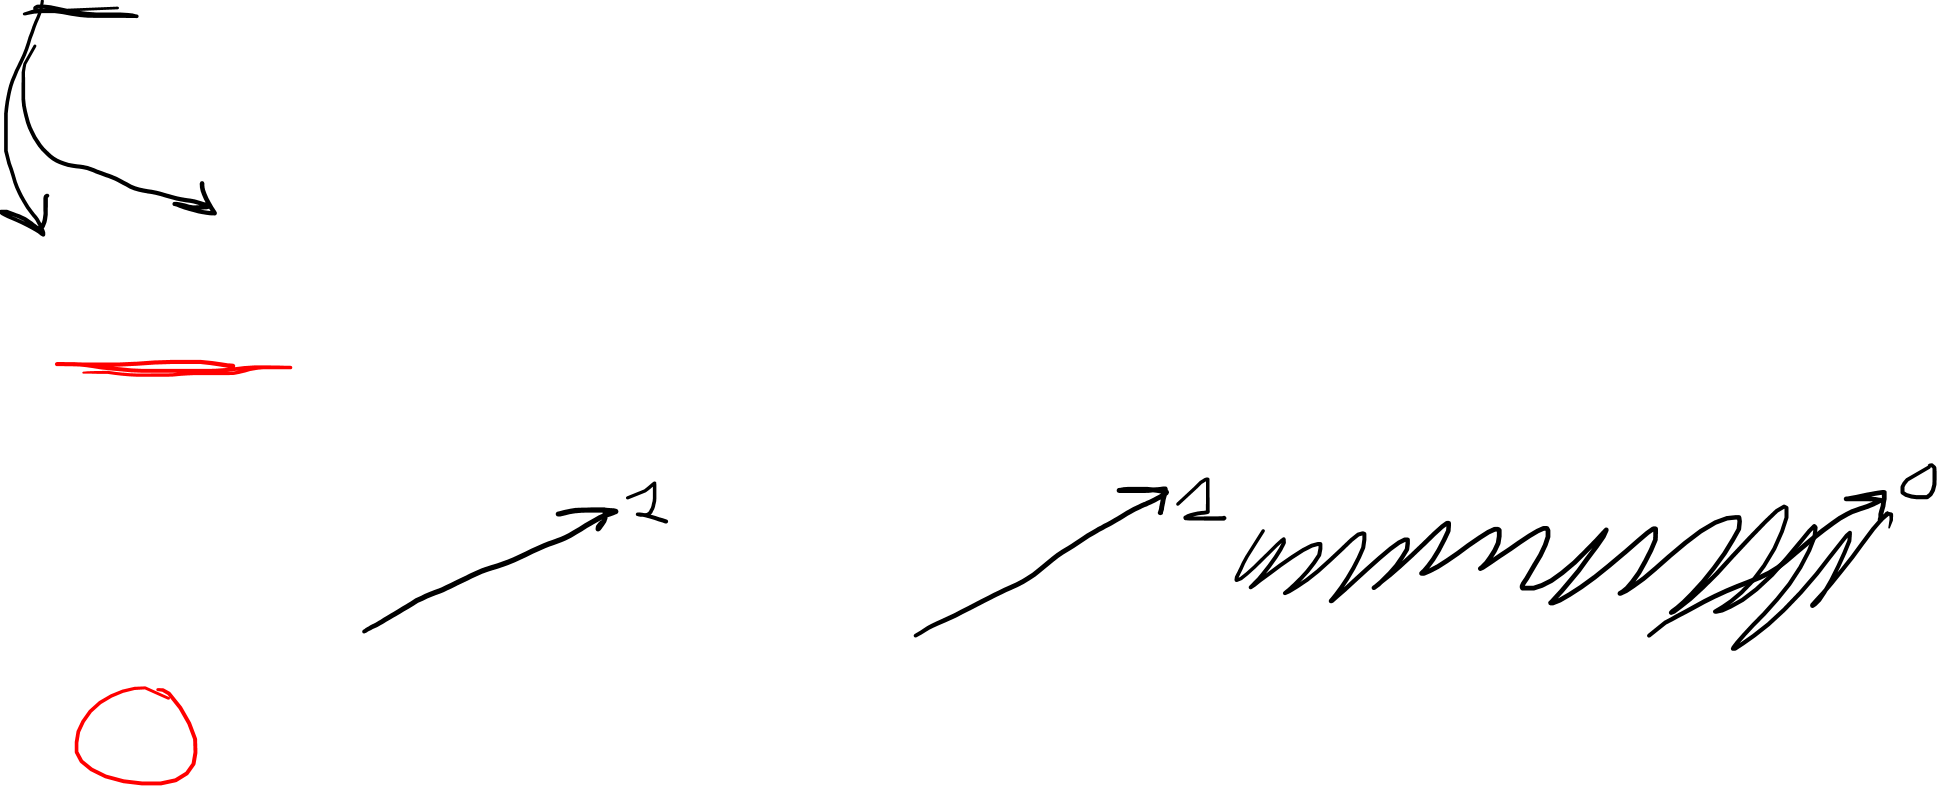 1 1 0